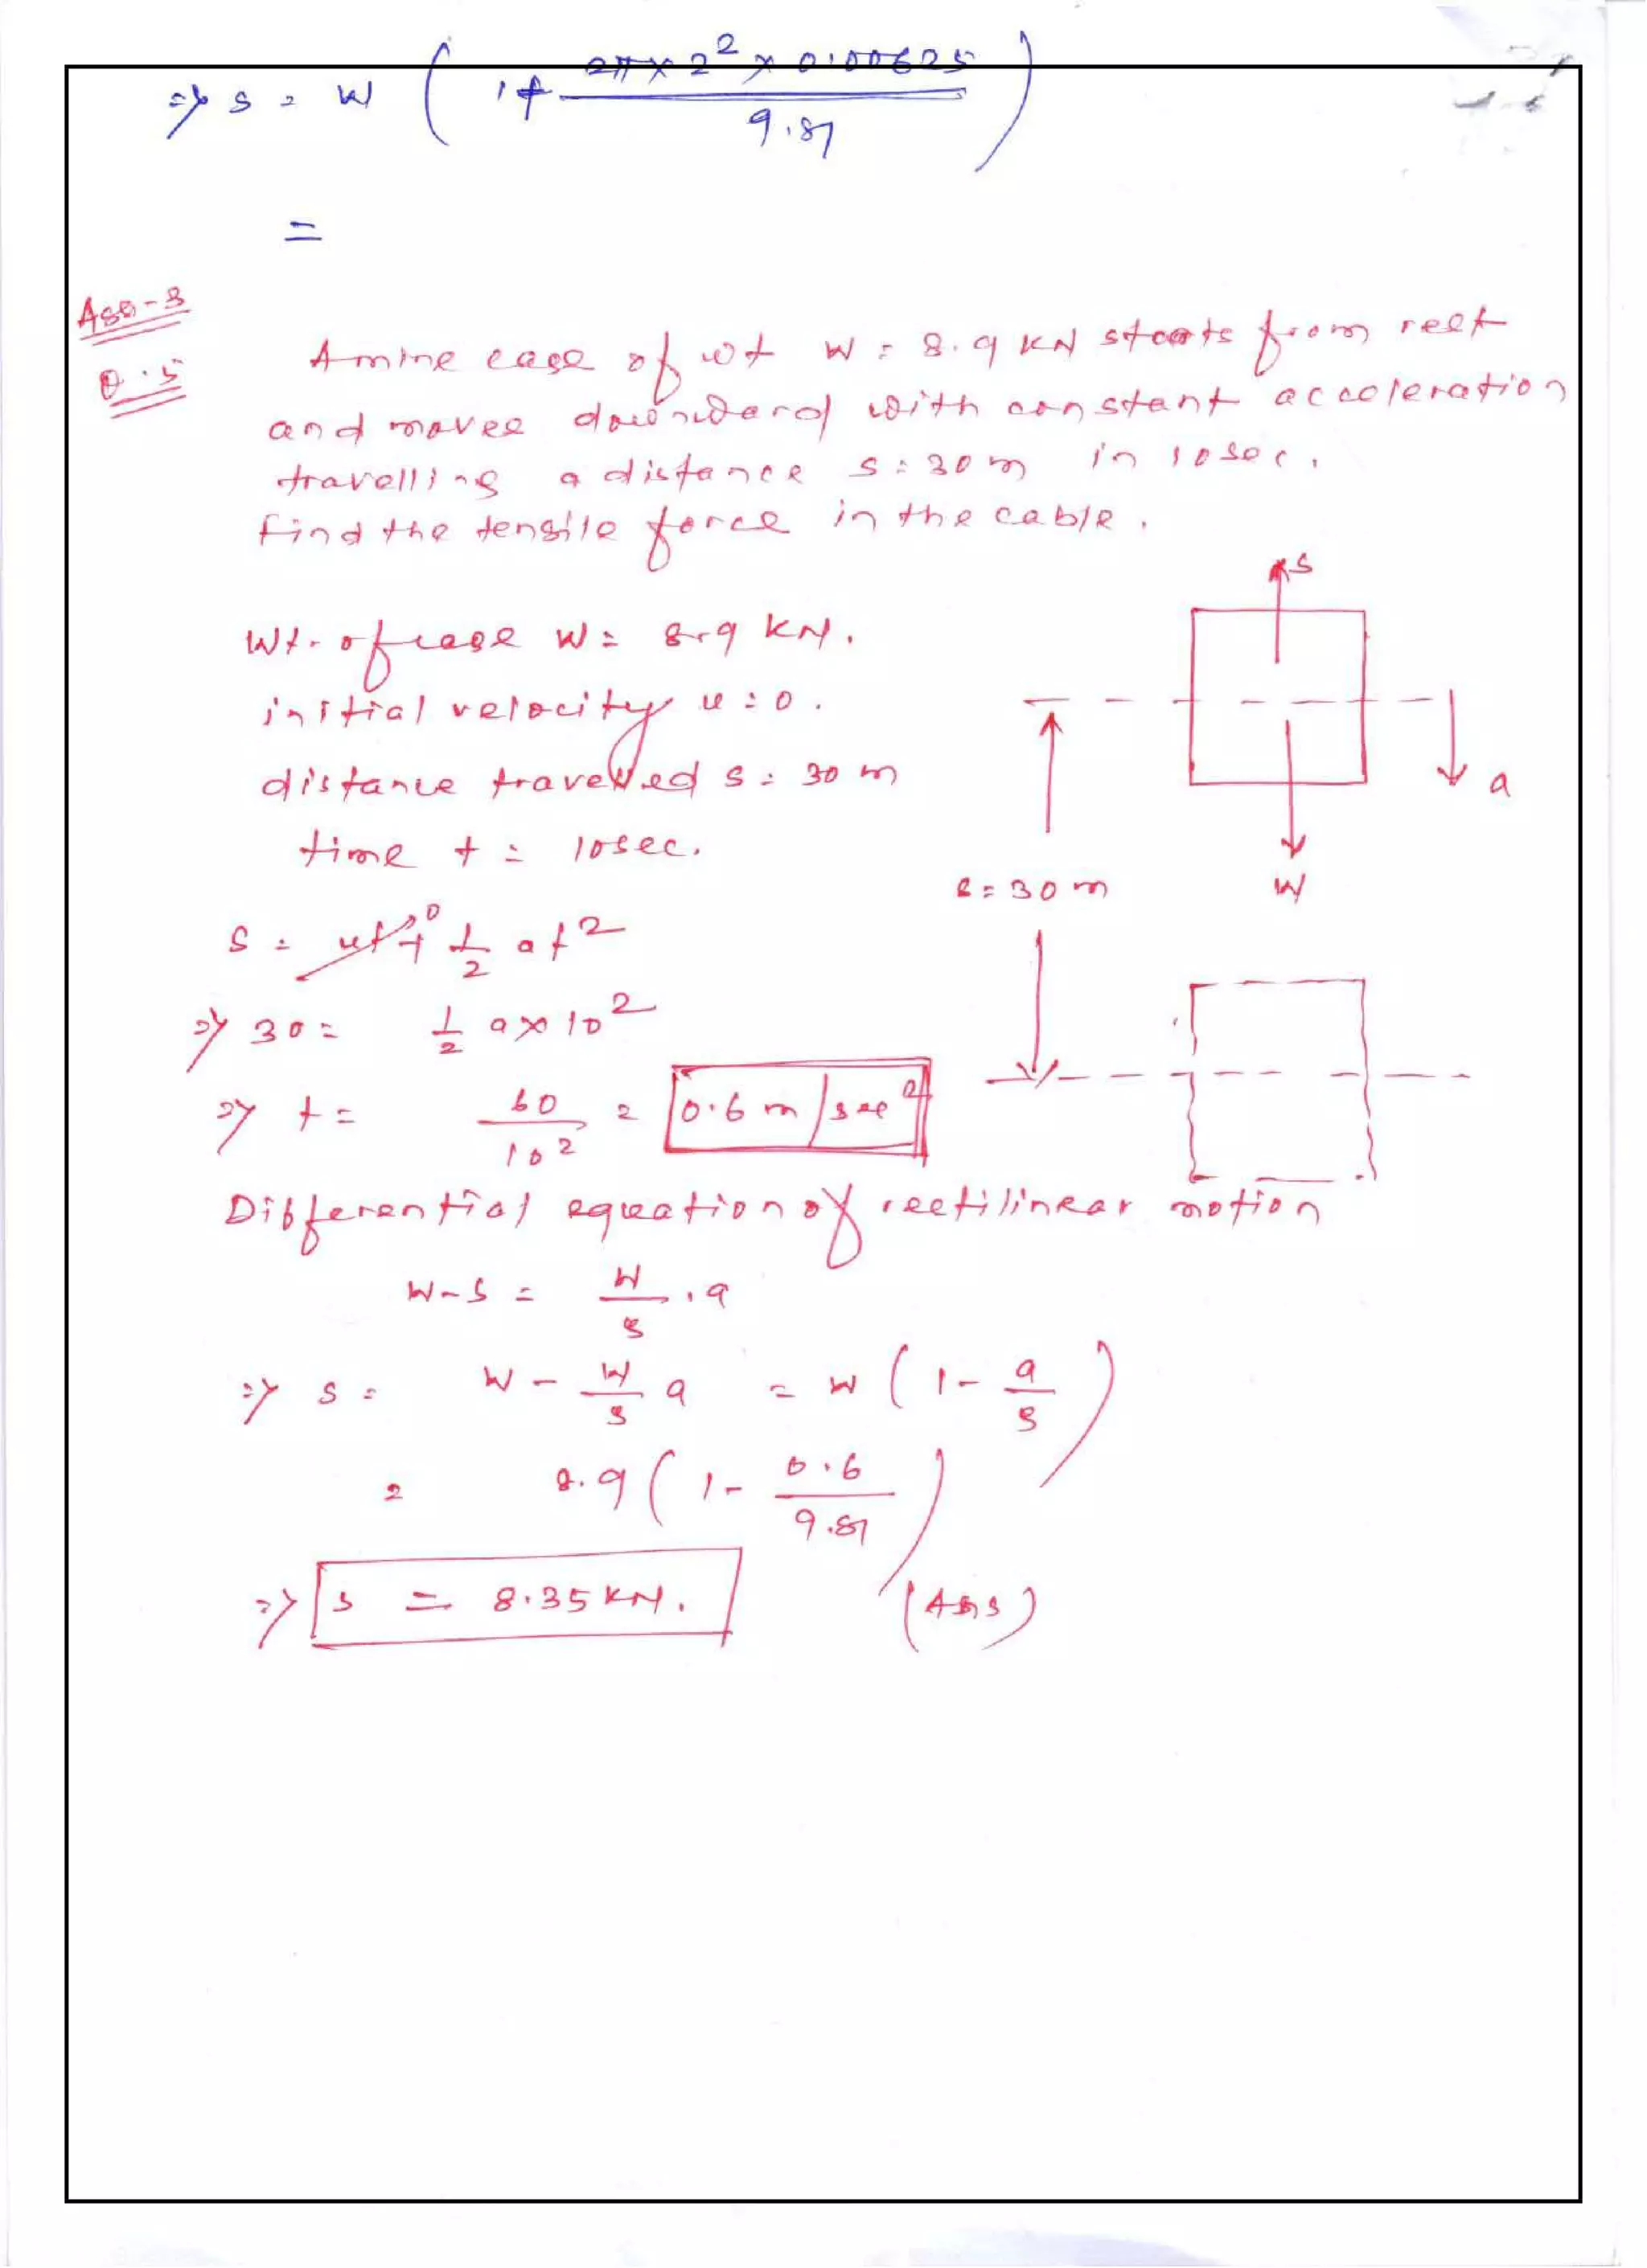 => S = W ( 1 + 2π × 2² × 0.00625 / 9.81 )
=
Ass-3
Q.5
A mine cage of wt W = 8.9 KN starts from rest
and moves downward with constant acceleration
travelling a distance s = 30 m in 10 sec.
Find the tensile force in the cable.
S
Wt. of cage W = 8.9 KN.
initial velocity u = 0.
distance travelled s = 30 m
a
time t = 10 sec.
s = 30 m
W
S = ut + 0 1/2 at²
=> 30 = 1/2 a × 10²
=> t = 60 / 10² = 0.6 m/sec²
Differential equation of rectilinear motion
W - S = W/g . a
=> S = W - W/g a = W ( 1 - a/g )
= 8.9 ( 1 - 0.6 / 9.81 )
=> S = 8.35 KN. (Ans)